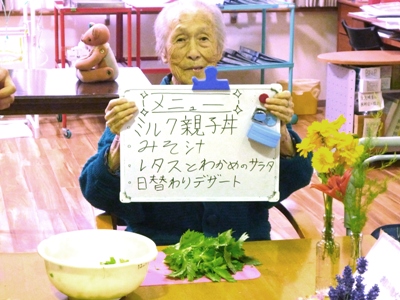 メニュー
ミルク親子丼
みそ汁
レタスとわかめのサラダ
日替わりデザート